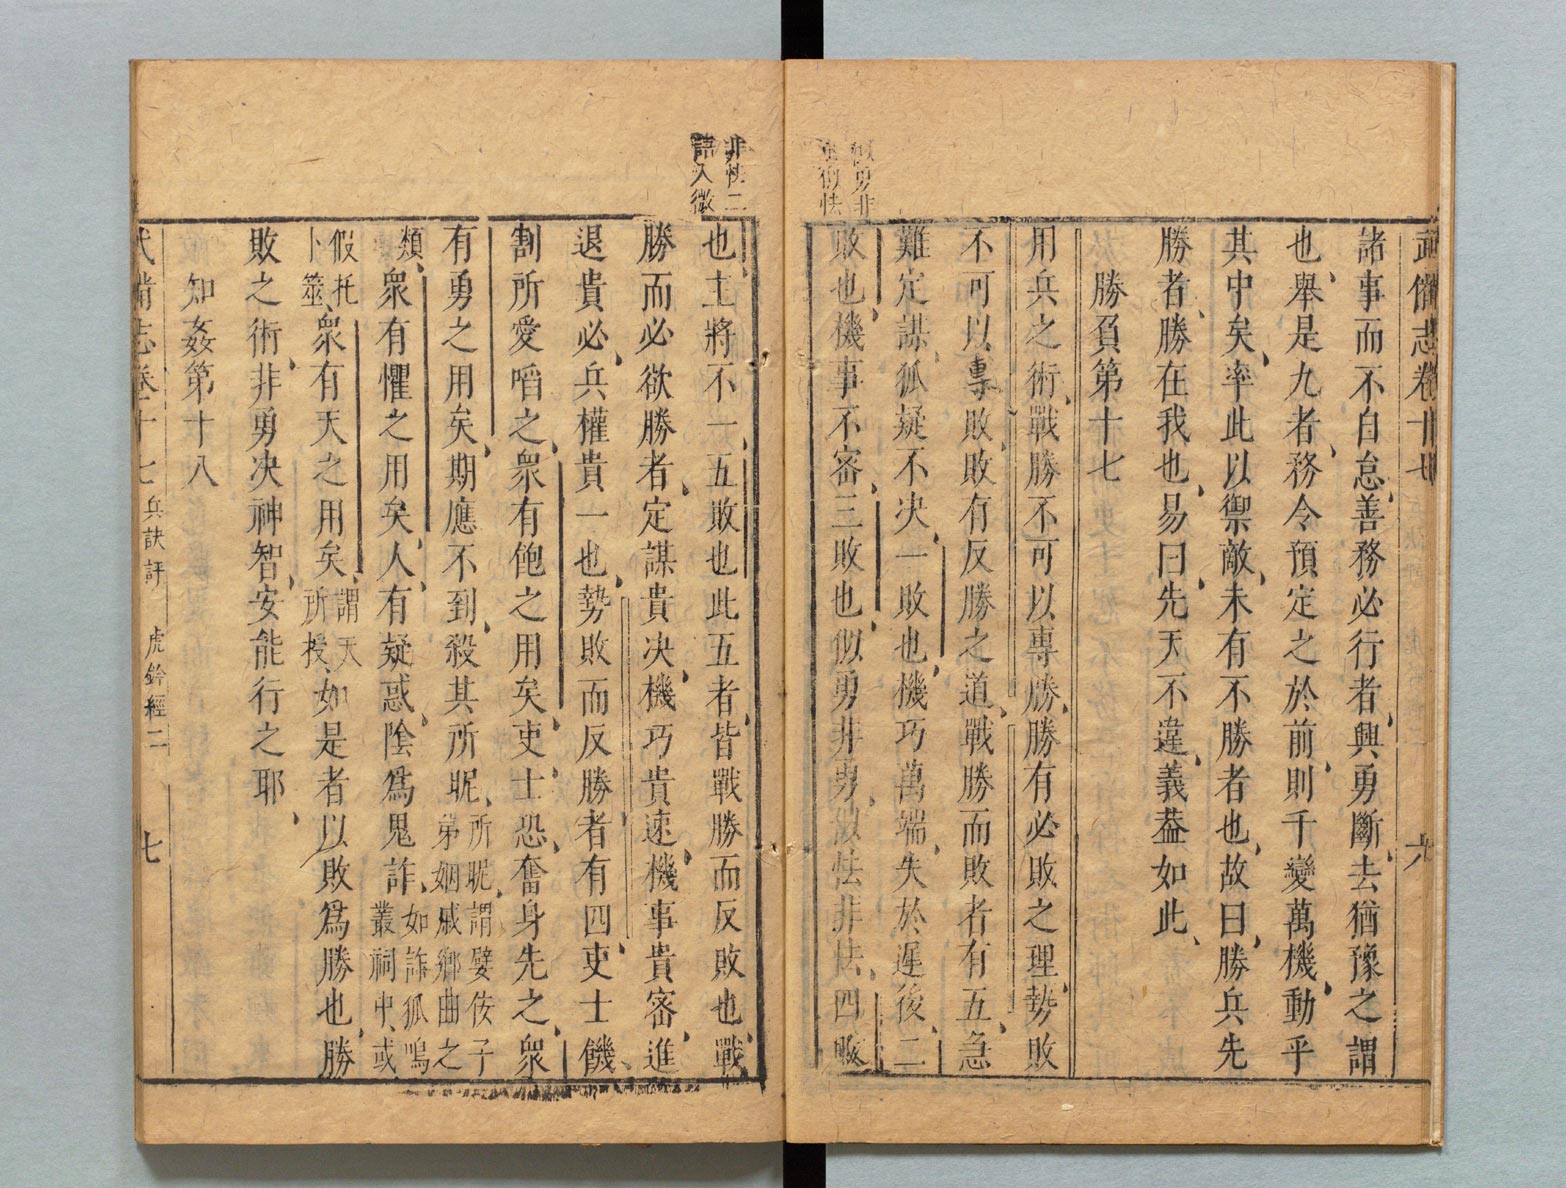 武備志卷十七
六
諸事而不自怠善務必行者興勇斷去猶豫之謂
也舉是九者務令預定之於前則千變萬機動乎
其中矣率此以禦敵未有不勝者也故曰勝兵先
勝者勝在我也易曰先天不違義葢如此
勝負第十七
用兵之術戰勝不可以專勝勝有必敗之理勢敗
不可以專敗敗有反勝之道戰勝而敗者有五急
難定謀狐疑不決一敗也機巧萬端失於遲後二
敗也機事不審三敗也似勇非勇似怯非怯四敗
似勇非
怯
也主將不一五敗也此五者皆戰勝而反敗也戰
勝而必欲勝者定謀貴決機巧貴速機事貴密進
退貴必兵權貴一也勢敗而反勝者有四吏士饑
割所愛啗之衆有飽之用矣吏士恐奮身先之衆
有勇之用矣期應不到殺其所昵所昵謂嬖侫子
弟姻戚鄉曲之
類衆有懼之用矣人有疑惑陰爲鬼詐如詐狐鳴
叢祠中或
假托
卜筮衆有天之用矣謂天
所授如是者以敗爲勝也勝
敗之術非勇決神智安能行之耶
知姦第十八
非怯二
語入微
武備志卷十七 兵訣評 虎鈐經二
七